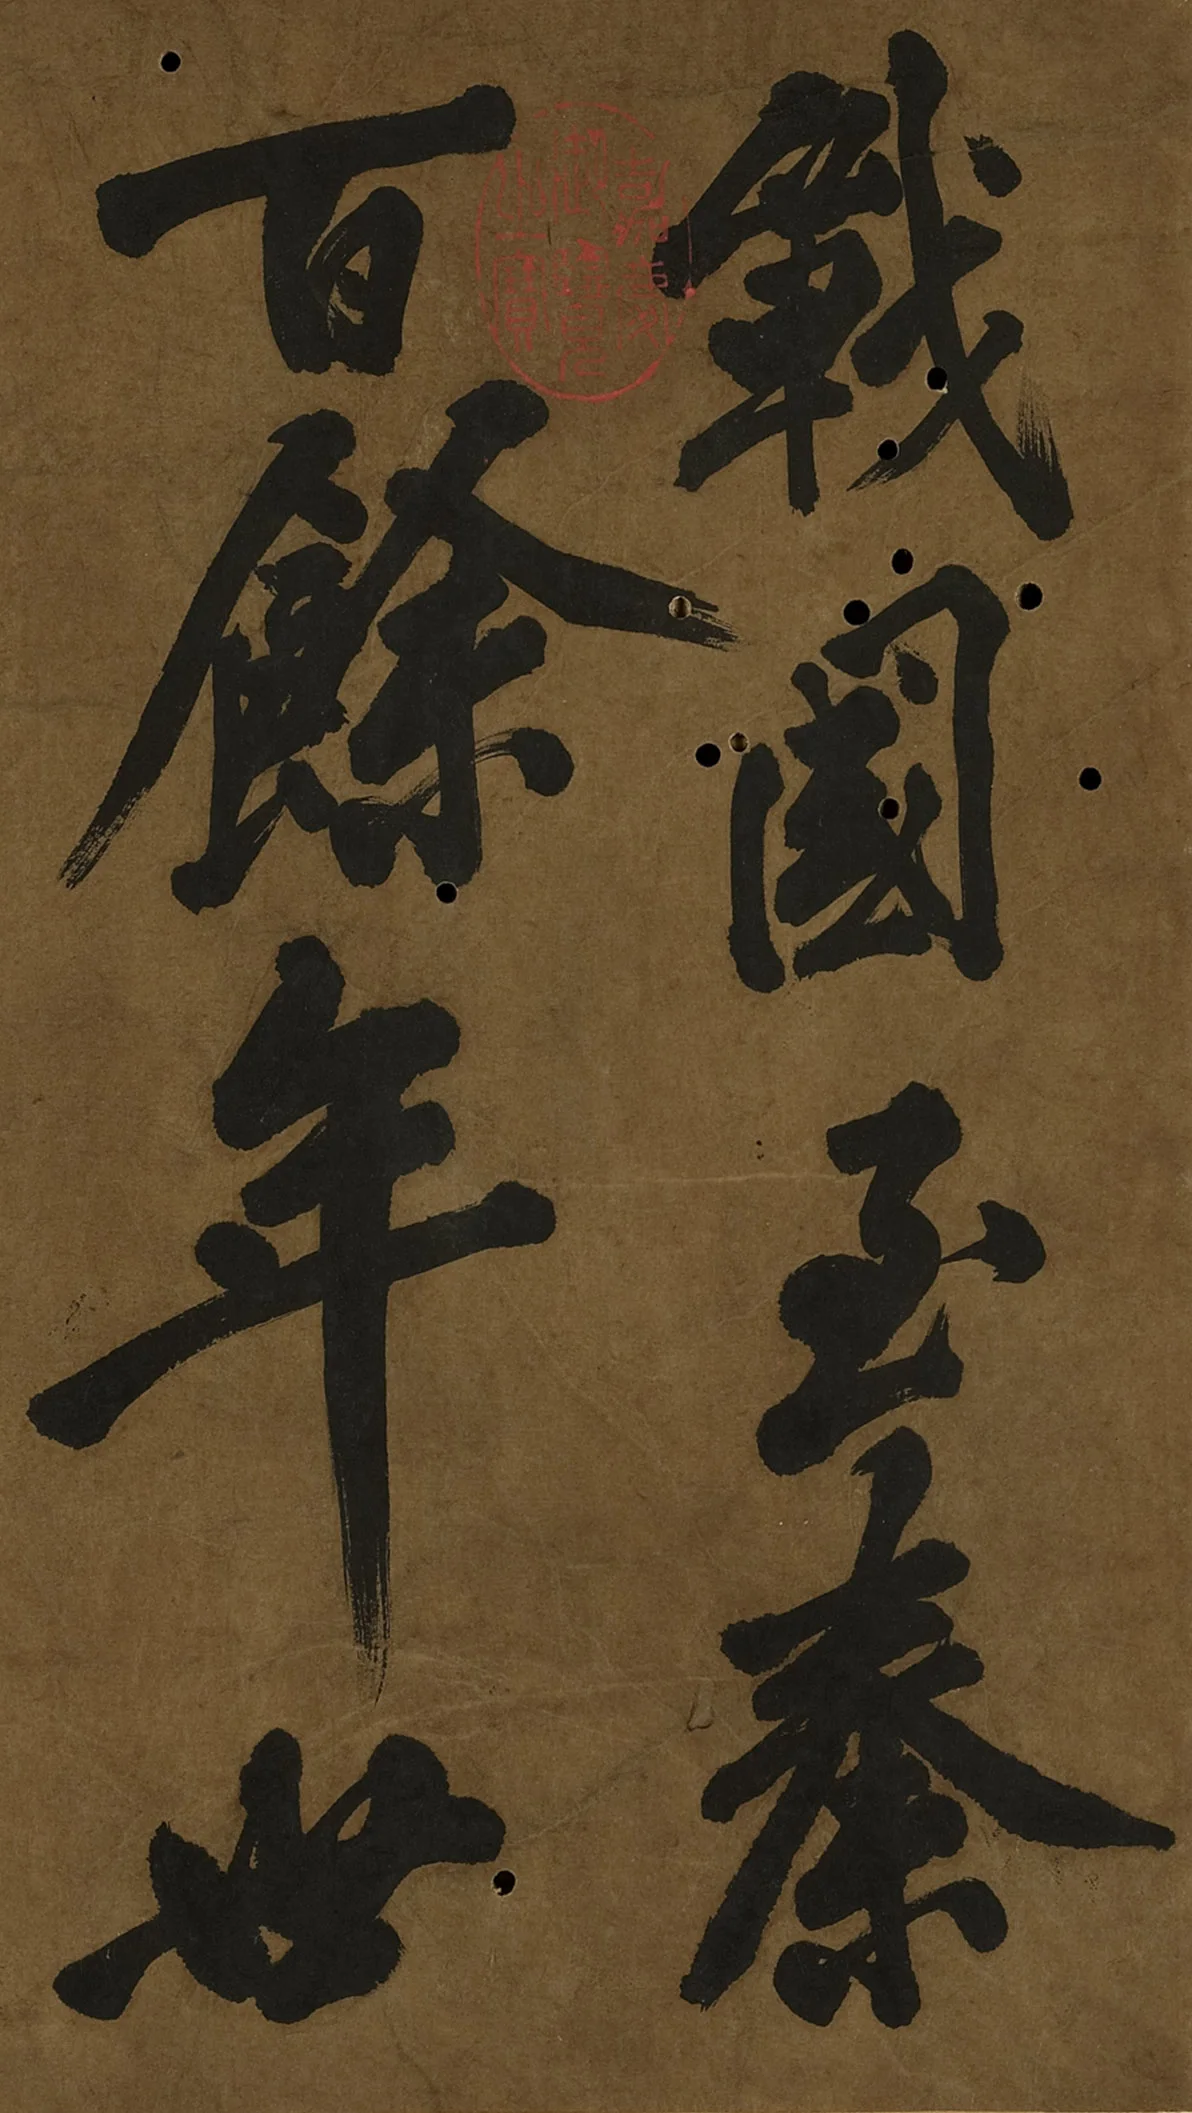 戰國至秦
百餘年世